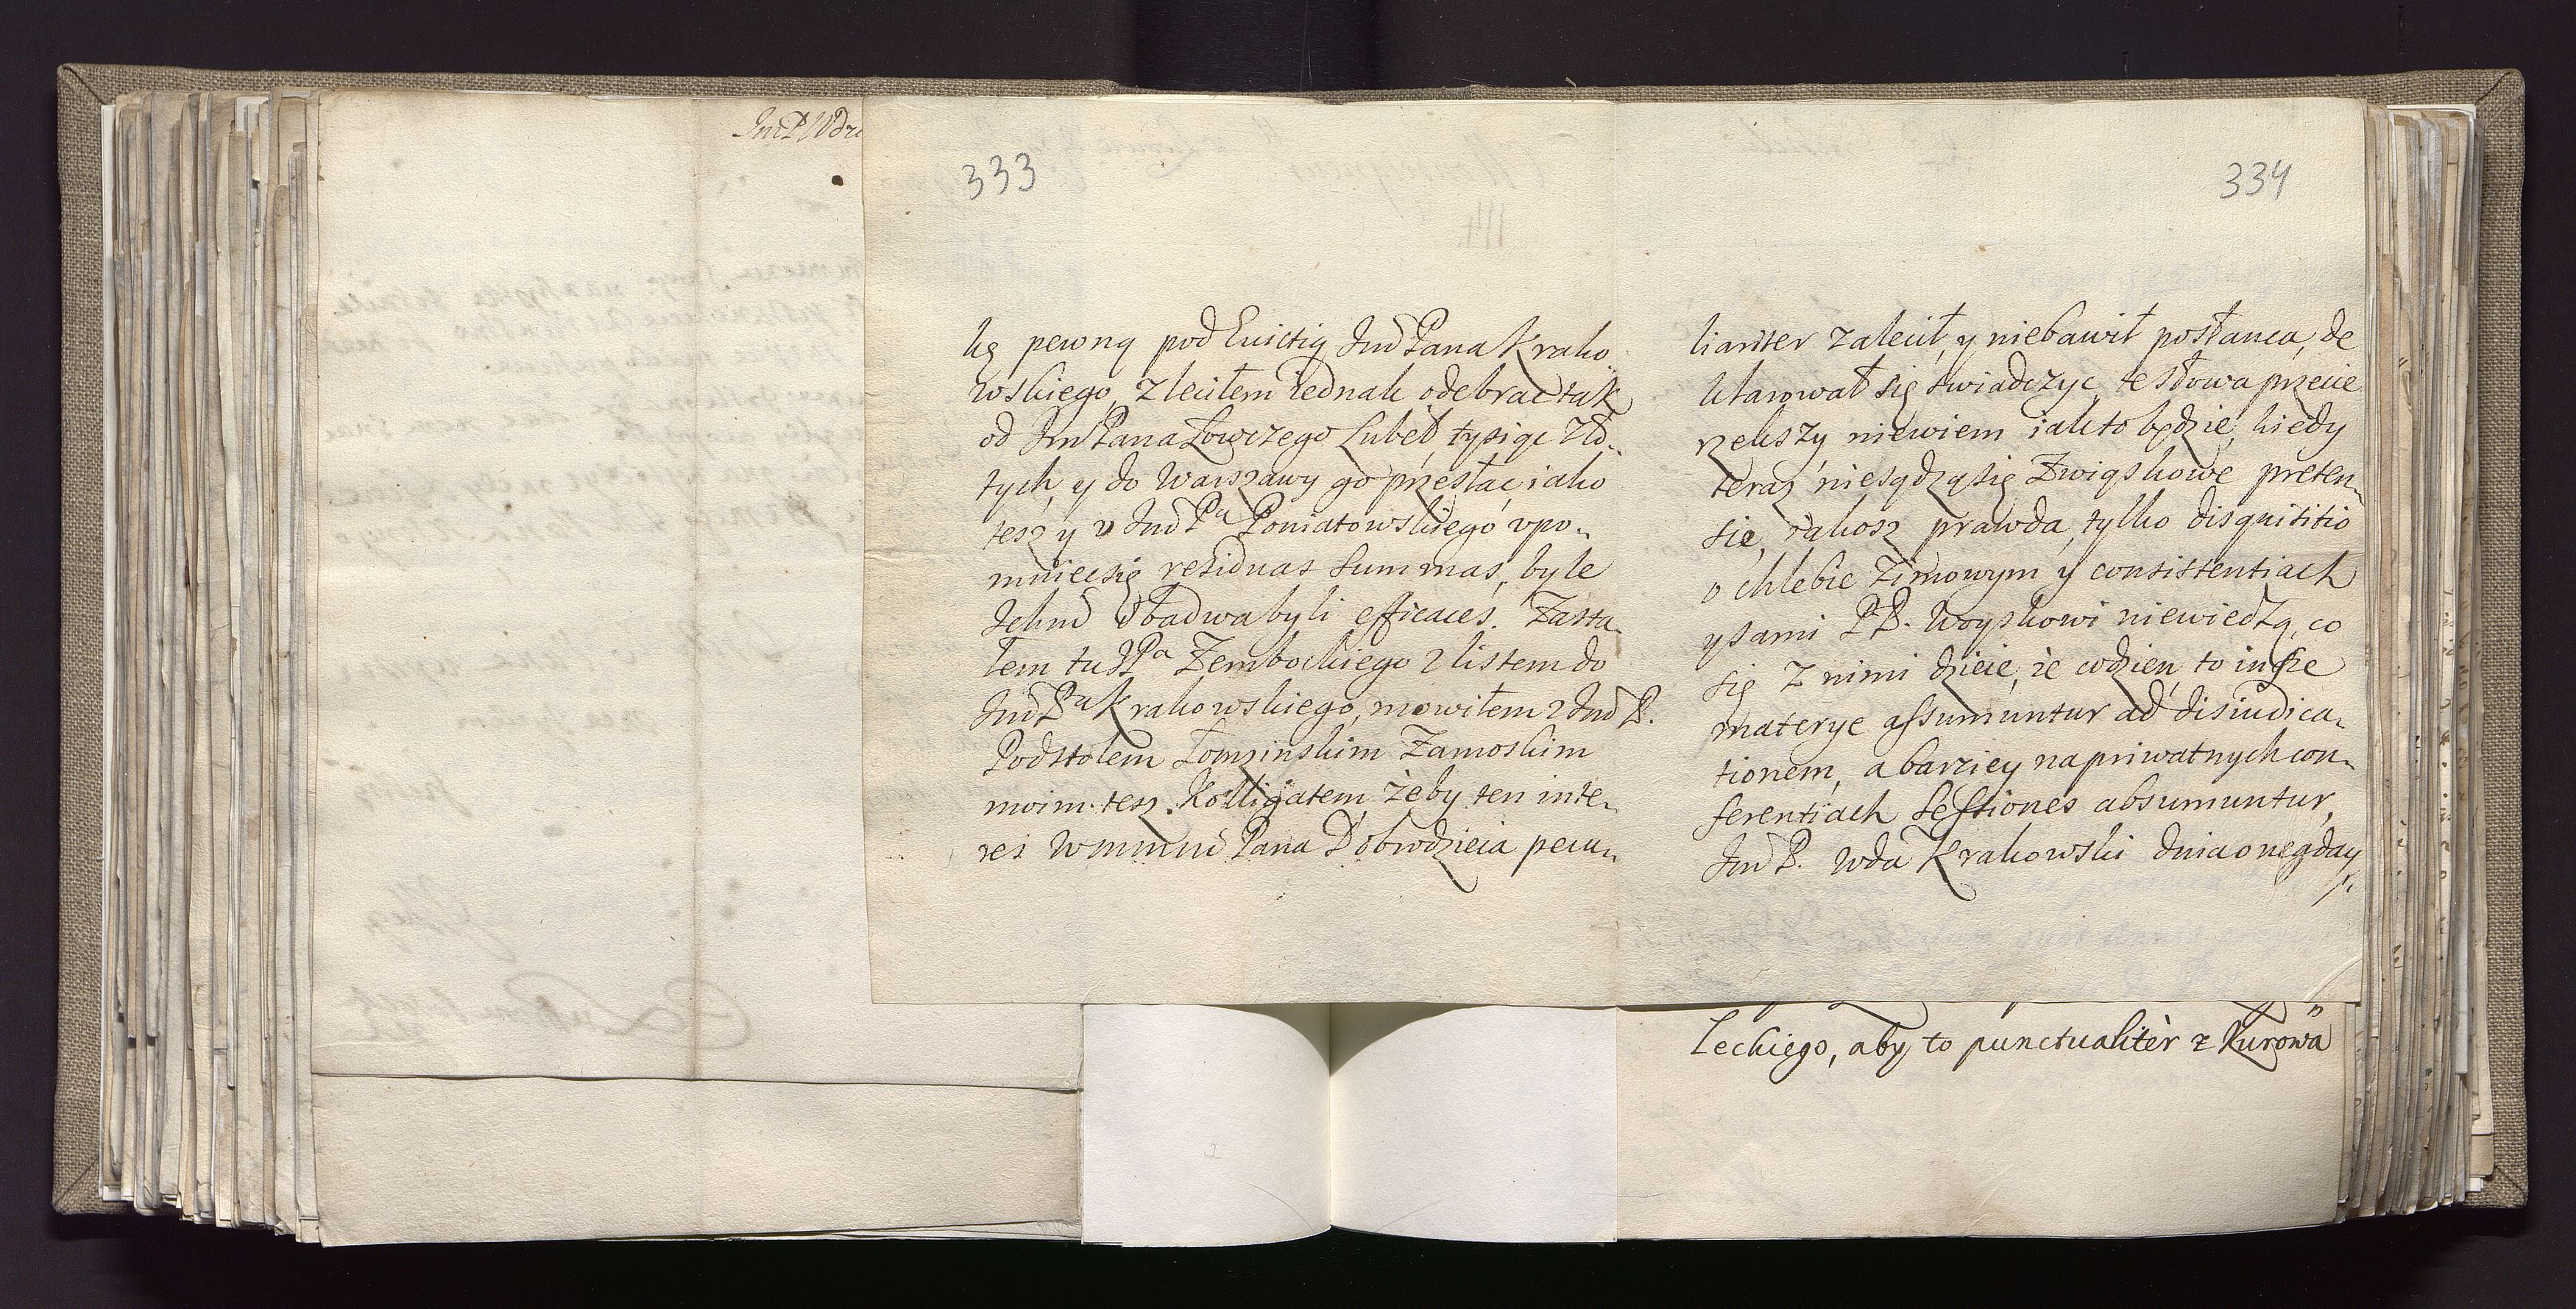 JmP Wdz
333
kę pewną pod Euictią Jmć Pana Krako
wskiego, zleciłem iednak odebrać tak
od Jmć Pana Łowczego Lubel, tysiąc zło„
tych, y do Warszawy go przesłać, iako
tesz y v Jmć Pa Poniatowskiego, vpo„
mniecsię residuas summas, byle
Ichmć Obadwa byli efficaces. Zasta„
łem tu JPa Zembockiego z listem do
Jmć Pa Krakowskiego, mowiłem z Jmć P.
Podstolem Łomzinskim Zamoskim
moim tesz Kolligatem, żeby ten inte„
res Wmmmć Pana Dobrodzieia pecu„
334
liariter zalecił, y niebawił posłanca, de
klarował się swiadczyc, te słowa przecie
rzekszy niewiem iak to będzie, kiedy
teraz niesądzą się Związkowe preten„
sie, iakosz prawda, tylko disquisitio
o chlebie zimowym y consistentiach
y sami PP. Woyskowi niewiedzą, co
się z nimi dzieie, że codzien, to insze
materye assumuntur ad disiudica„
tionem, a barziey na priwatnych con„
ferentiach sessiones absumuntur,
Jmć P. Wda Krakowski dnia onegday
leckiego, aby to punctualitèr z Kurowa